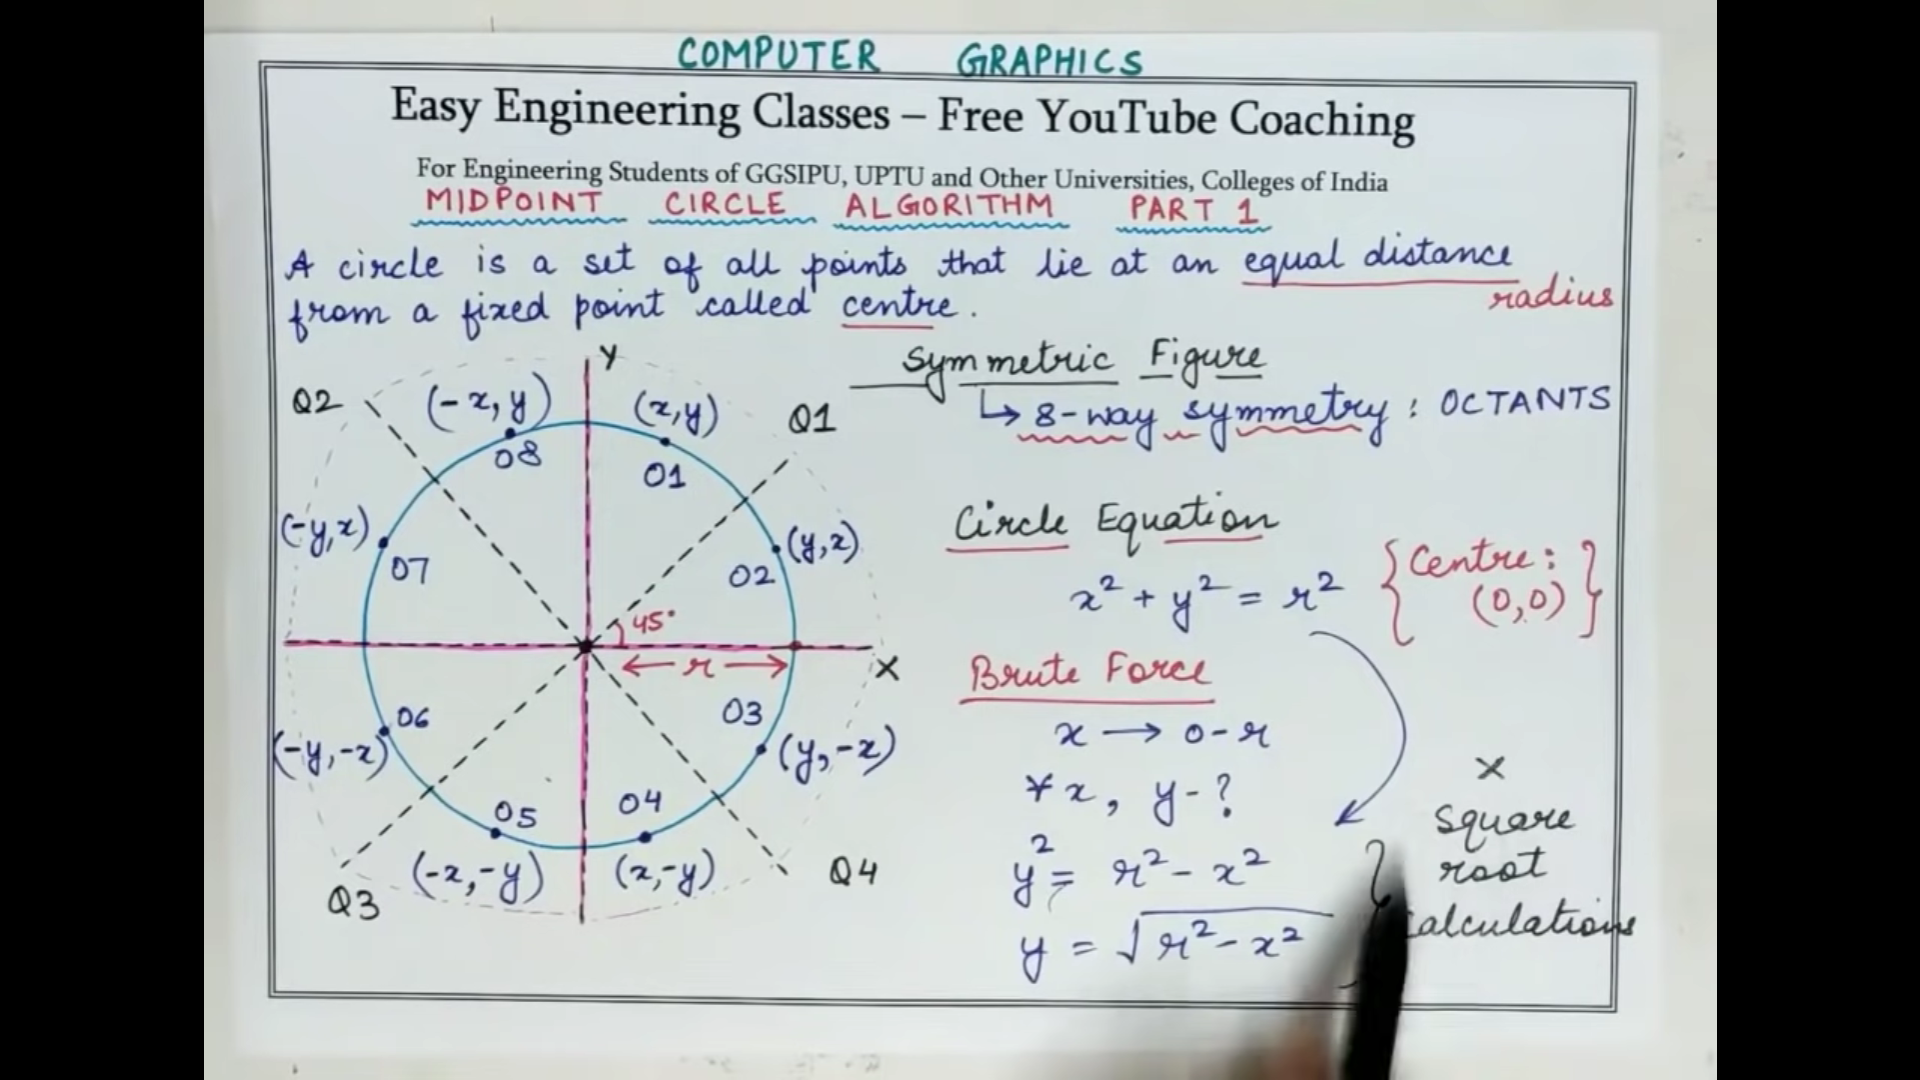 COMPUTER GRAPHICS
Easy Engineering Classes – Free YouTube Coaching
For Engineering Students of GGSIPU, UPTU and Other Universities, Colleges of India
MIDPOINT CIRCLE ALGORITHM PART 1
A circle is a set of all points that lie at an equal distance
radius
from a fixed point called centre.
Y
Q2
(-x, y)
(x,y)
Q1
O8
O1
(-y,x)
(y,x)
O7
O2
45°
r
X
O6
O3
(-y,-x)
(y,-x)
O5
O4
(-x,-y)
(x,-y)
Q3
Q4
Symmetric Figure
↳ 8-way symmetry : OCTANTS
Circle Equation
x² + y² = r² {Centre: (0,0)}
Brute Force
x → 0-r
∀x, y-?
y² = r² - x²
y = √r² - x²
×
square
root
calculations